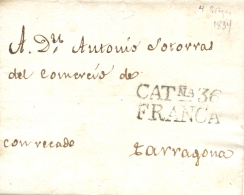 1834
A. Dn. Antonio Sotorras
del Comercio de
CATÑA 36
FRANCA
con recado Tarragona